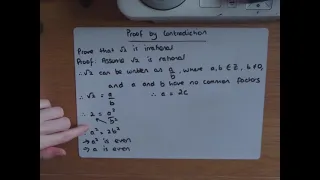 Proof by Contradiction
Prove that √2 is irrational
Proof: Assume √2 is rational
∴ √2 can be written as a/b, where a, b ∈ ℤ, b ≠ 0,
and a and b have no common factors
∴ √2 = a/b ∴ a = 2c
∴ 2 = a²/b²
∴ a² = 2b²
→ a² is even
→ a is even